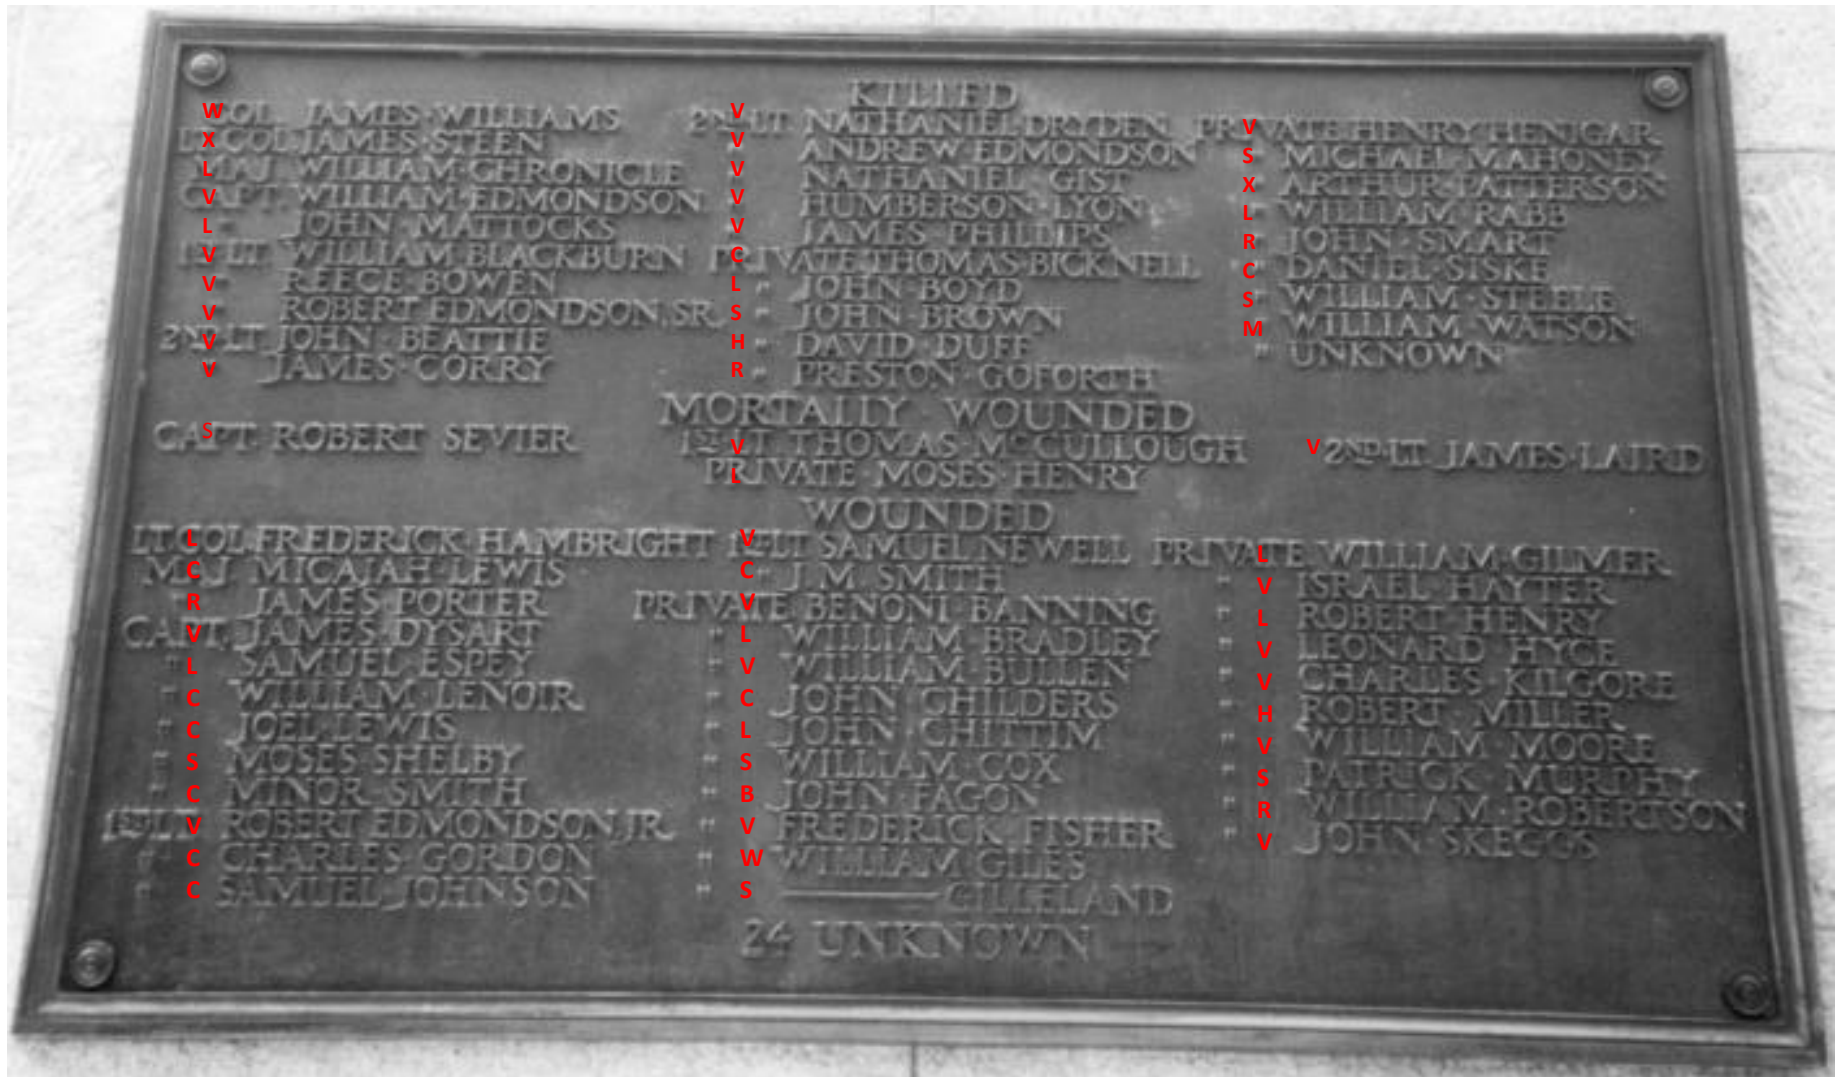 KILLED
W COL. JAMES · WILLIAMS
X LT. COL. JAMES · STEEN
L MAJ. WILLIAM · CHRONICLE
V CAPT. WILLIAM · EDMONDSON
L " JOHN MATTOCKS
V 1ST LT. WILLIAM BLACKBURN
V " REECE · BOWEN
V " ROBERT EDMONDSON, SR.
V 2ND LT. JOHN · BEATTIE
V " JAMES · CORRY
V 2ND LT. NATHANIEL DRYDEN
V " ANDREW · EDMONDSON
V " NATHANIEL GIST
V " HUMBERSON · LYON
V " JAMES PHILLIPS
C PRIVATE THOMAS · BICKNELL
L " JOHN · BOYD
S " JOHN · BROWN
H " DAVID · DUFF
R " PRESTON · GOFORTH
V PRIVATE HENRY HENIGAR
S " MICHAEL · MAHONEY
X " ARTHUR · PATTERSON
L " WILLIAM RABB
R " JOHN · SMART
C " DANIEL · SISKE
S " WILLIAM · STEELE
M " WILLIAM · WATSON
" UNKNOWN
MORTALLY · WOUNDED
S CAPT. ROBERT SEVIER
V 1ST LT THOMAS McCULLOUGH
L PRIVATE · MOSES · HENRY
V 2ND LT. JAMES · LAIRD
WOUNDED
L LT. COL. FREDERICK · HAMBRIGHT
C MAJ. MICAJAH · LEWIS
R " JAMES · PORTER
V CAPT. JAMES · DYSART
L " SAMUEL · ESPEY
C " WILLIAM · LENOIR
C " JOEL · LEWIS
S " MOSES · SHELBY
C " MINOR · SMITH
V 1ST LT. ROBERT EDMONDSON, JR.
C " CHARLES GORDON
C " SAMUEL JOHNSON
V 1ST LT SAMUEL NEWELL
C " J. M. SMITH
V PRIVATE BENONI BANNING
L " WILLIAM BRADLEY
V " WILLIAM · BULLEN
C " JOHN · CHILDERS
L " JOHN · CHITTIM
S " WILLIAM COX
B " JOHN FAGON
V " FREDERICK FISHER
W " WILLIAM GILES
S " ——— GILLELAND
L PRIVATE WILLIAM · GILMER
V " ISRAEL HAYTER
L " ROBERT HENRY
V " LEONARD HYCE
V " CHARLES · KILGORE
H " ROBERT MILLER
V " WILLIAM MOORE
S " PATRICK MURPHY
R " WILLIAM · ROBERTSON
V " JOHN SKEGGS
24 UNKNOWN